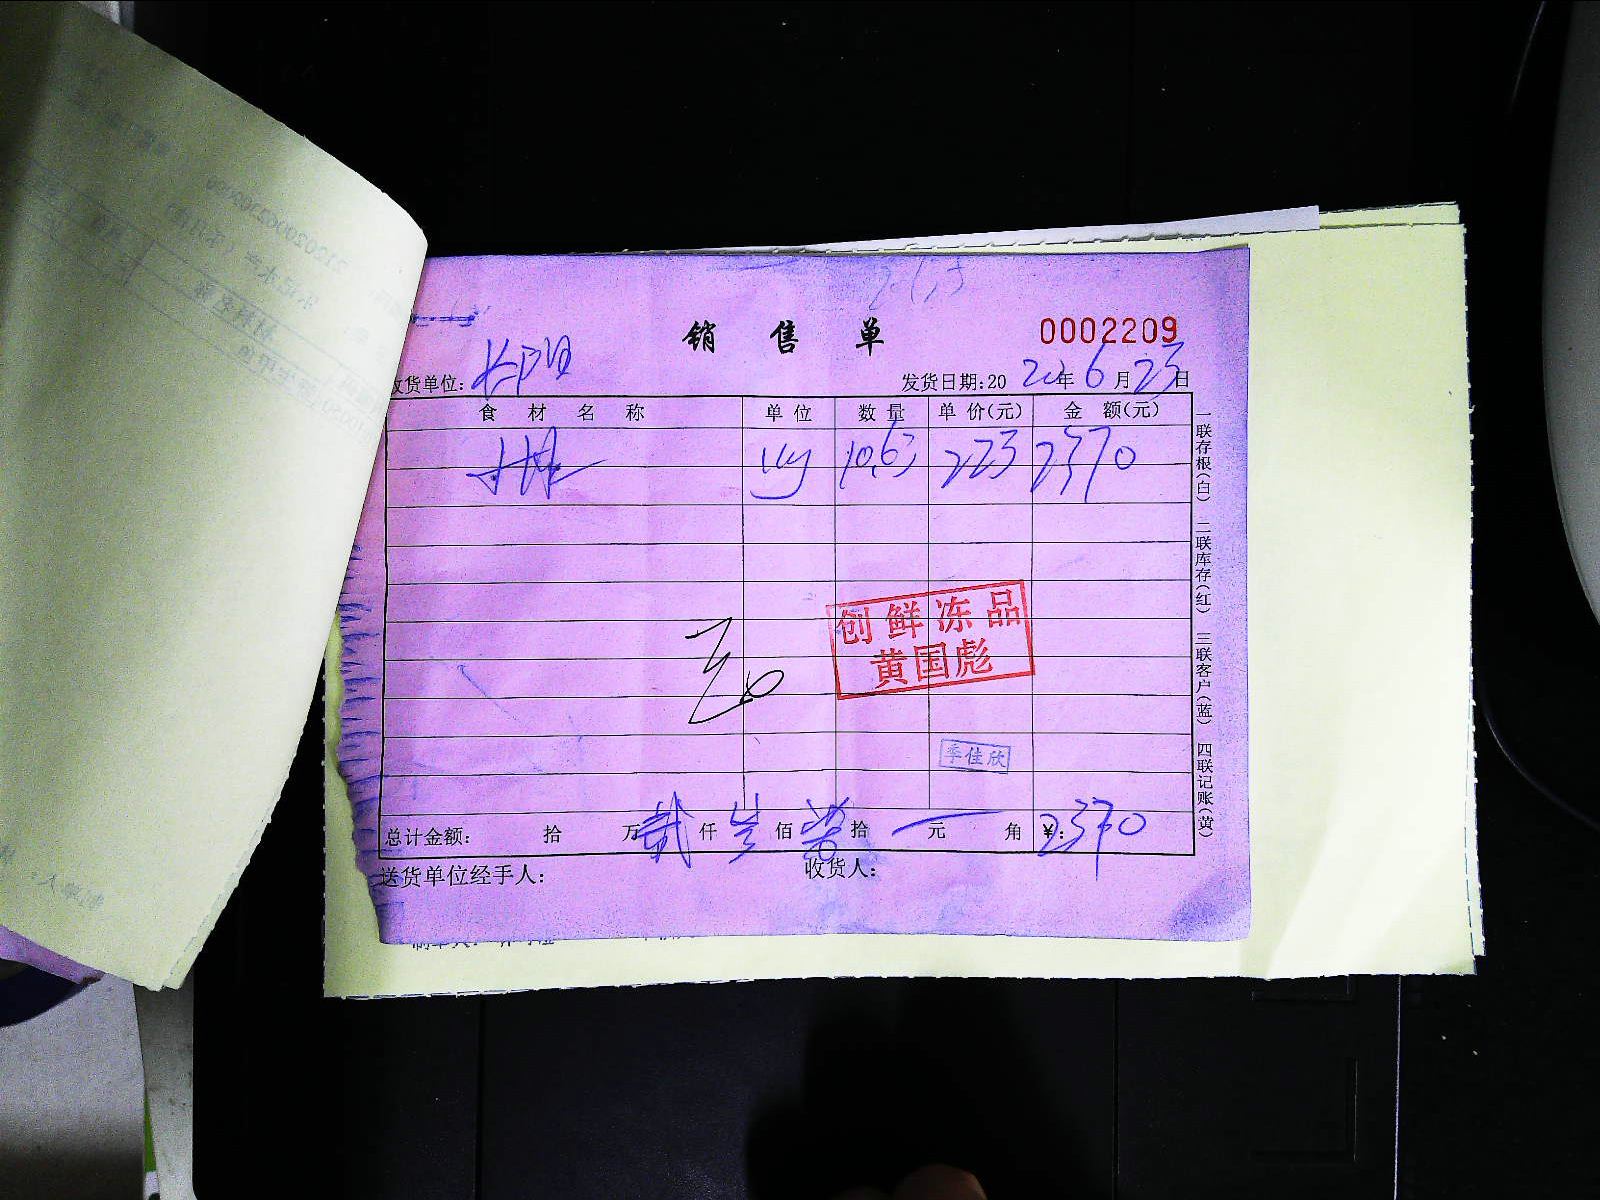 销售单
0002209
收货单位: 长阳
发货日期:20 20 年 6 月 23 日
食材名称 单位 数量 单价(元) 金额(元)
kg 10.63 223 2370
创鲜冻品
黄国彪
季佳欣
总计金额: 拾 万 贰 仟 叁 佰 柒 拾 元 角 ¥: 2370
送货单位经手人: 收货人:
一联存根(白) 二联库存(红) 三联客户(蓝) 四联记账(黄)